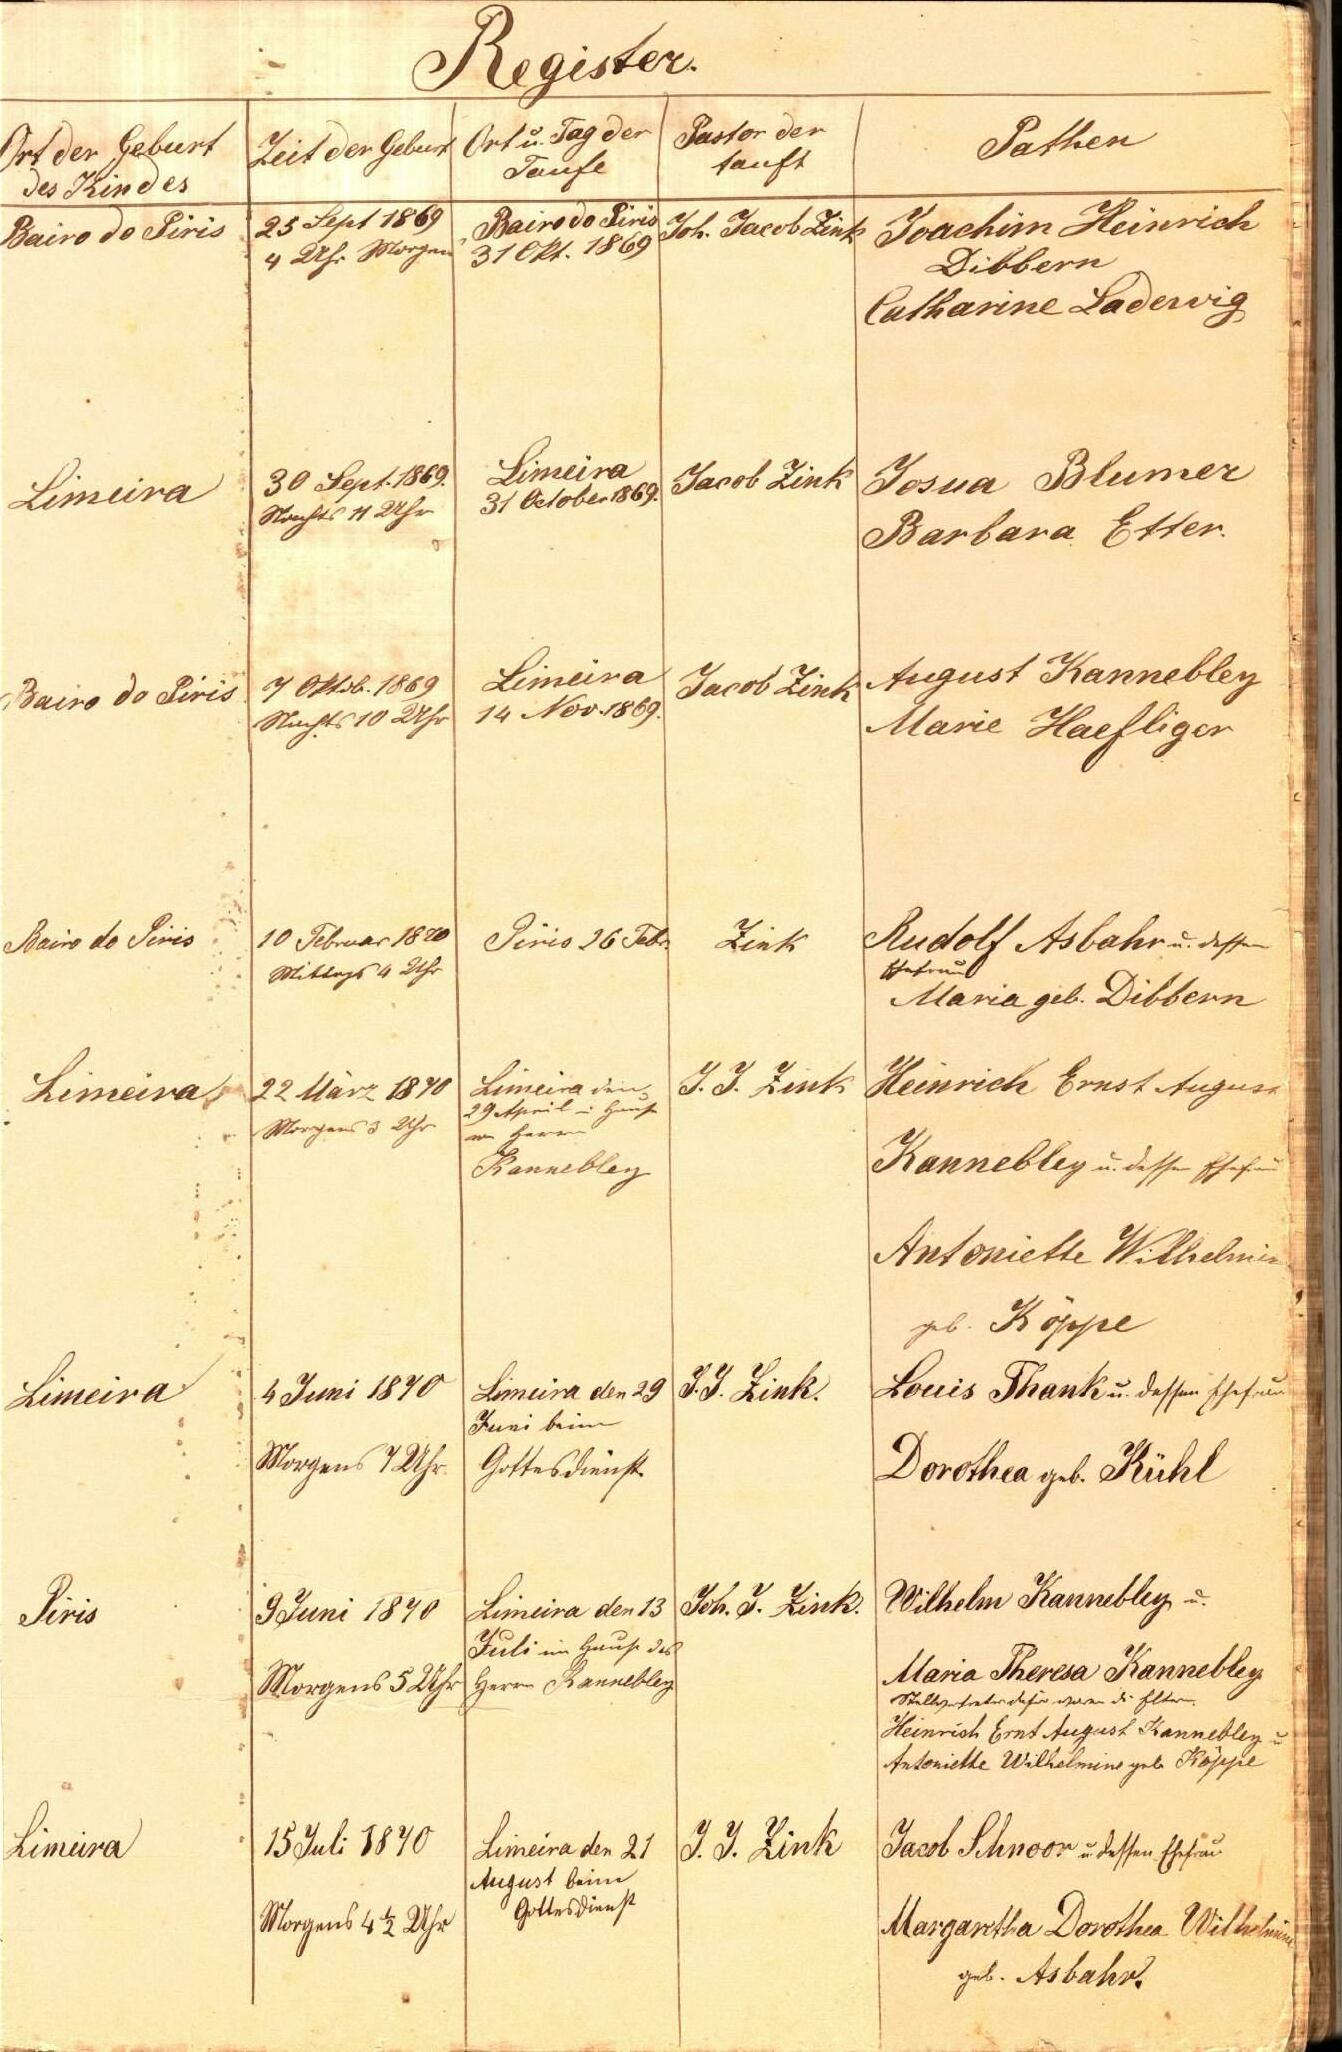 Register.
Ort der Geburt
des Kindes
Zeit der Geburt
Ort u. Tag der
Taufe
Pastor der
tauft
Pathen
Bairo do Piris
25 Sept 1869
4 Uhr Morgens
Bairo do Piris
31 Okt. 1869
Joh. Jacob Zink
Joachim Heinrich
Dibbern
Catharine Ladewig
Limeira
30 Sept. 1869.
Nachts 11 Uhr
Limeira
31 October 1869.
Jacob Zink
Josua Blumer
Barbara Etter.
Bairo do Piris
7 Oktob. 1869
Nachts 10 Uhr
Limeira
14 Nov. 1869.
Jacob Zink
August Kannebley
Marie Haefliger
Bairo do Piris
10 Februar 1870
Mittags 4 Uhr
Piris 26 Febr.
Zink
Rudolf Asbahr u. dessen
Ehefrau
Maria geb. Dibbern
Limeira
22 März 1870
Morgens 3 Uhr
Limeira den
29 April i Hause
von Herrn
Kannebley
J. J. Zink
Heinrich Ernst August
Kannebley u. dessen Ehefrau
Antoniette Wilhelmine
geb. Köppe
Limeira
4 Juni 1870
Morgens 7 Uhr
Limeira den 29
Juni beim
Gottesdienst
J. J. Zink.
Louis Thank u. dessen Ehefrau
Dorothea geb. Kühl
Piris
9 Juni 1870
Morgens 5 Uhr
Limeira den 13
Juli im Hause des
Herrn Kannebley
Joh. J. Zink.
Wilhelm Kannebley u.
Maria Theresa Kannebley
Stellvertreter dafür waren die Eltern.
Heinrich Ernt August Kannebley u
Antoniette Wilhelmine geb Köppe
Limeira
15 Juli 1870
Morgens 4 ½ Uhr
Limeira den 21
August beim
Gottesdienst
J. J. Zink
Jacob Schnoor u dessen Ehefrau
Margaretha Dorothea Wilhelmine
geb. Asbahr.